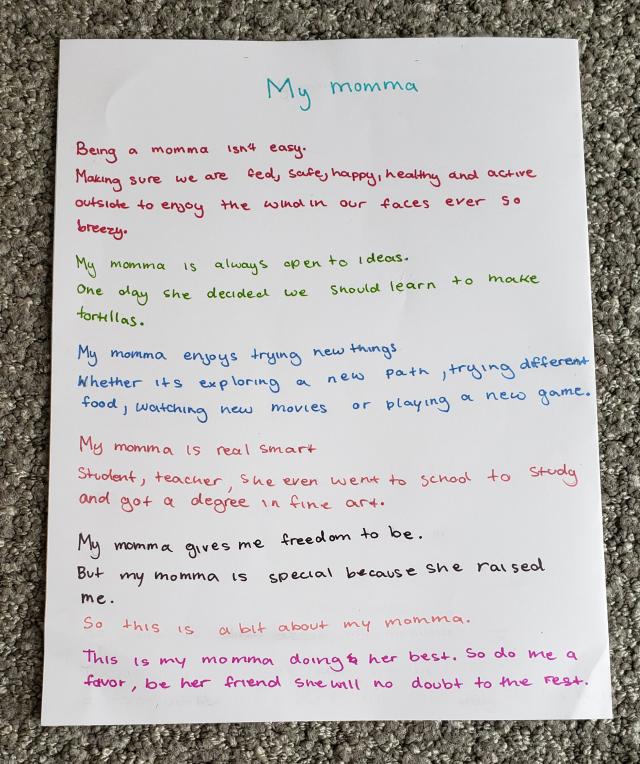 My momma
Being a momma isn't easy.
Making sure we are fed, safe, happy, healthy and active
outside to enjoy the wind in our faces ever so
breezy.
My momma is always open to ideas.
One day she decided we should learn to make
tortillas.
My momma enjoys trying new things
Whether its exploring a new path, trying different
food, watching new movies or playing a new game.
My momma is real smart
Student, teacher, she even went to school to study
and got a degree in fine art.
My momma gives me freedom to be.
But my momma is special because she raised
me.
So this is a bit about my momma.
This is my momma doing her best. So do me a
favor, be her friend she will no doubt to the rest.